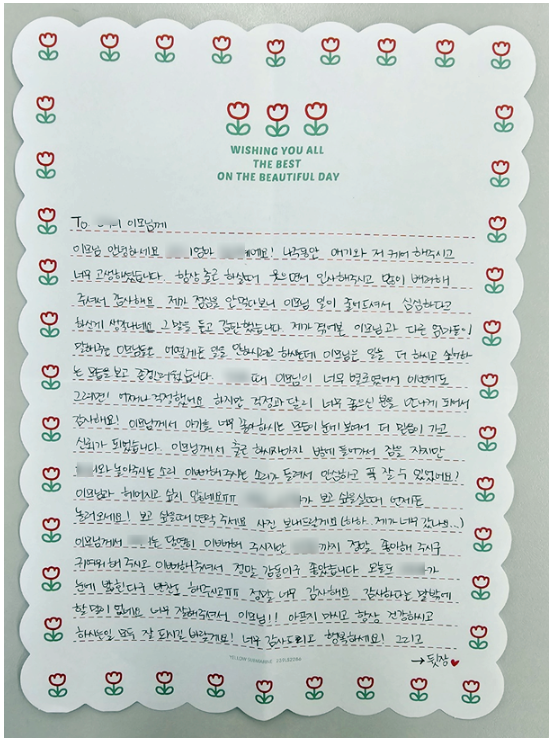 WISHING YOU ALL
THE BEST
ON THE BEAUTIFUL DAY
To. 이모님께
이모님 안녕하세요 엄마 예요! 나주동안 애기와 저 케어 해주시고
너무 고생하셨습니다. 항상 출근 하실때 웃으면서 인사해주시고 많이 배려해
주셔서 감사해요. 제가 점심을 안먹다보니 이모님 일이 줄어드셔서 심심하다고
하신게 생각나네요 그 말을 듣고 감탄했습니다. 제가 겪어본 이모님과 다른 엄마들이
말해주는 이모님들은 어떻게든 일을 안하시려고 하셨는데 이모님은 일을 더 하시고 싶어하
는 모습을 보고 존경스러웠습니다. 때 이모님이 너무 별로였어서 이번에도
그러려나! 어쩌나 걱정했어요 하지만 걱정과 달리 너무 좋으신 분을 만나게 되어서
감사해요! 이모님께서 아기를 너무 좋아하시는 모습이 눈에 보여서 더 믿음이 가고
신뢰가 되었습니다. 이모님께서 출근 하시자마자 방에 들어가서 잠을 자지만
와 놀아주시는 소리 이뻐해주시는 소리가 들려서 안심하고 푹 잘 수 있었어요!
이모님과 헤어지고 싶지 않네요ㅠㅠ 가 보고 싶을실때 언제든
놀러오세요! 보고 싶을때 연락 주세요 사진 보내드릴게요(하하.. 제가 너무 갔나요...)
이모님께서 는 당연히 이뻐해 주시지만 까지 정말 좋아해 주시구
귀여워 해 주시고 이뻐해주셔서 정말 감동이구 좋았습니다 오늘도 가
눈에 밟힌다구 반찬도 해주시고ㅠㅠ 정말 너무 감사해요 감사하다는 말밖에
할 말이 없네요 너무 잘해주셔서 이모님!! 아프지 마시고 항상 건강하시고
하시는일 모두 잘 되시길 바랄게요! 너무 감사드리고 행복하세요! 그리고
→ 뒷장♥